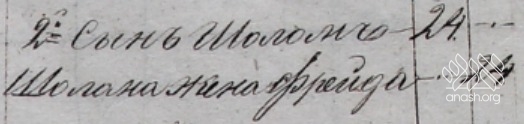 2й Сынъ Шоломъ 24
Шолома жена Фрейда 24
anash.org